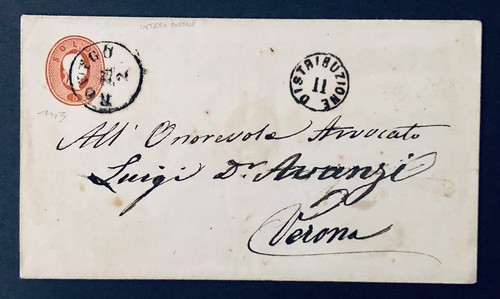 INTERO POSTALE
SOLDI
ROVIGO
2
DISTRIBUZIONE
11
All' Onorevole Avvocato
Luigi Dr. Avanzi
Verona